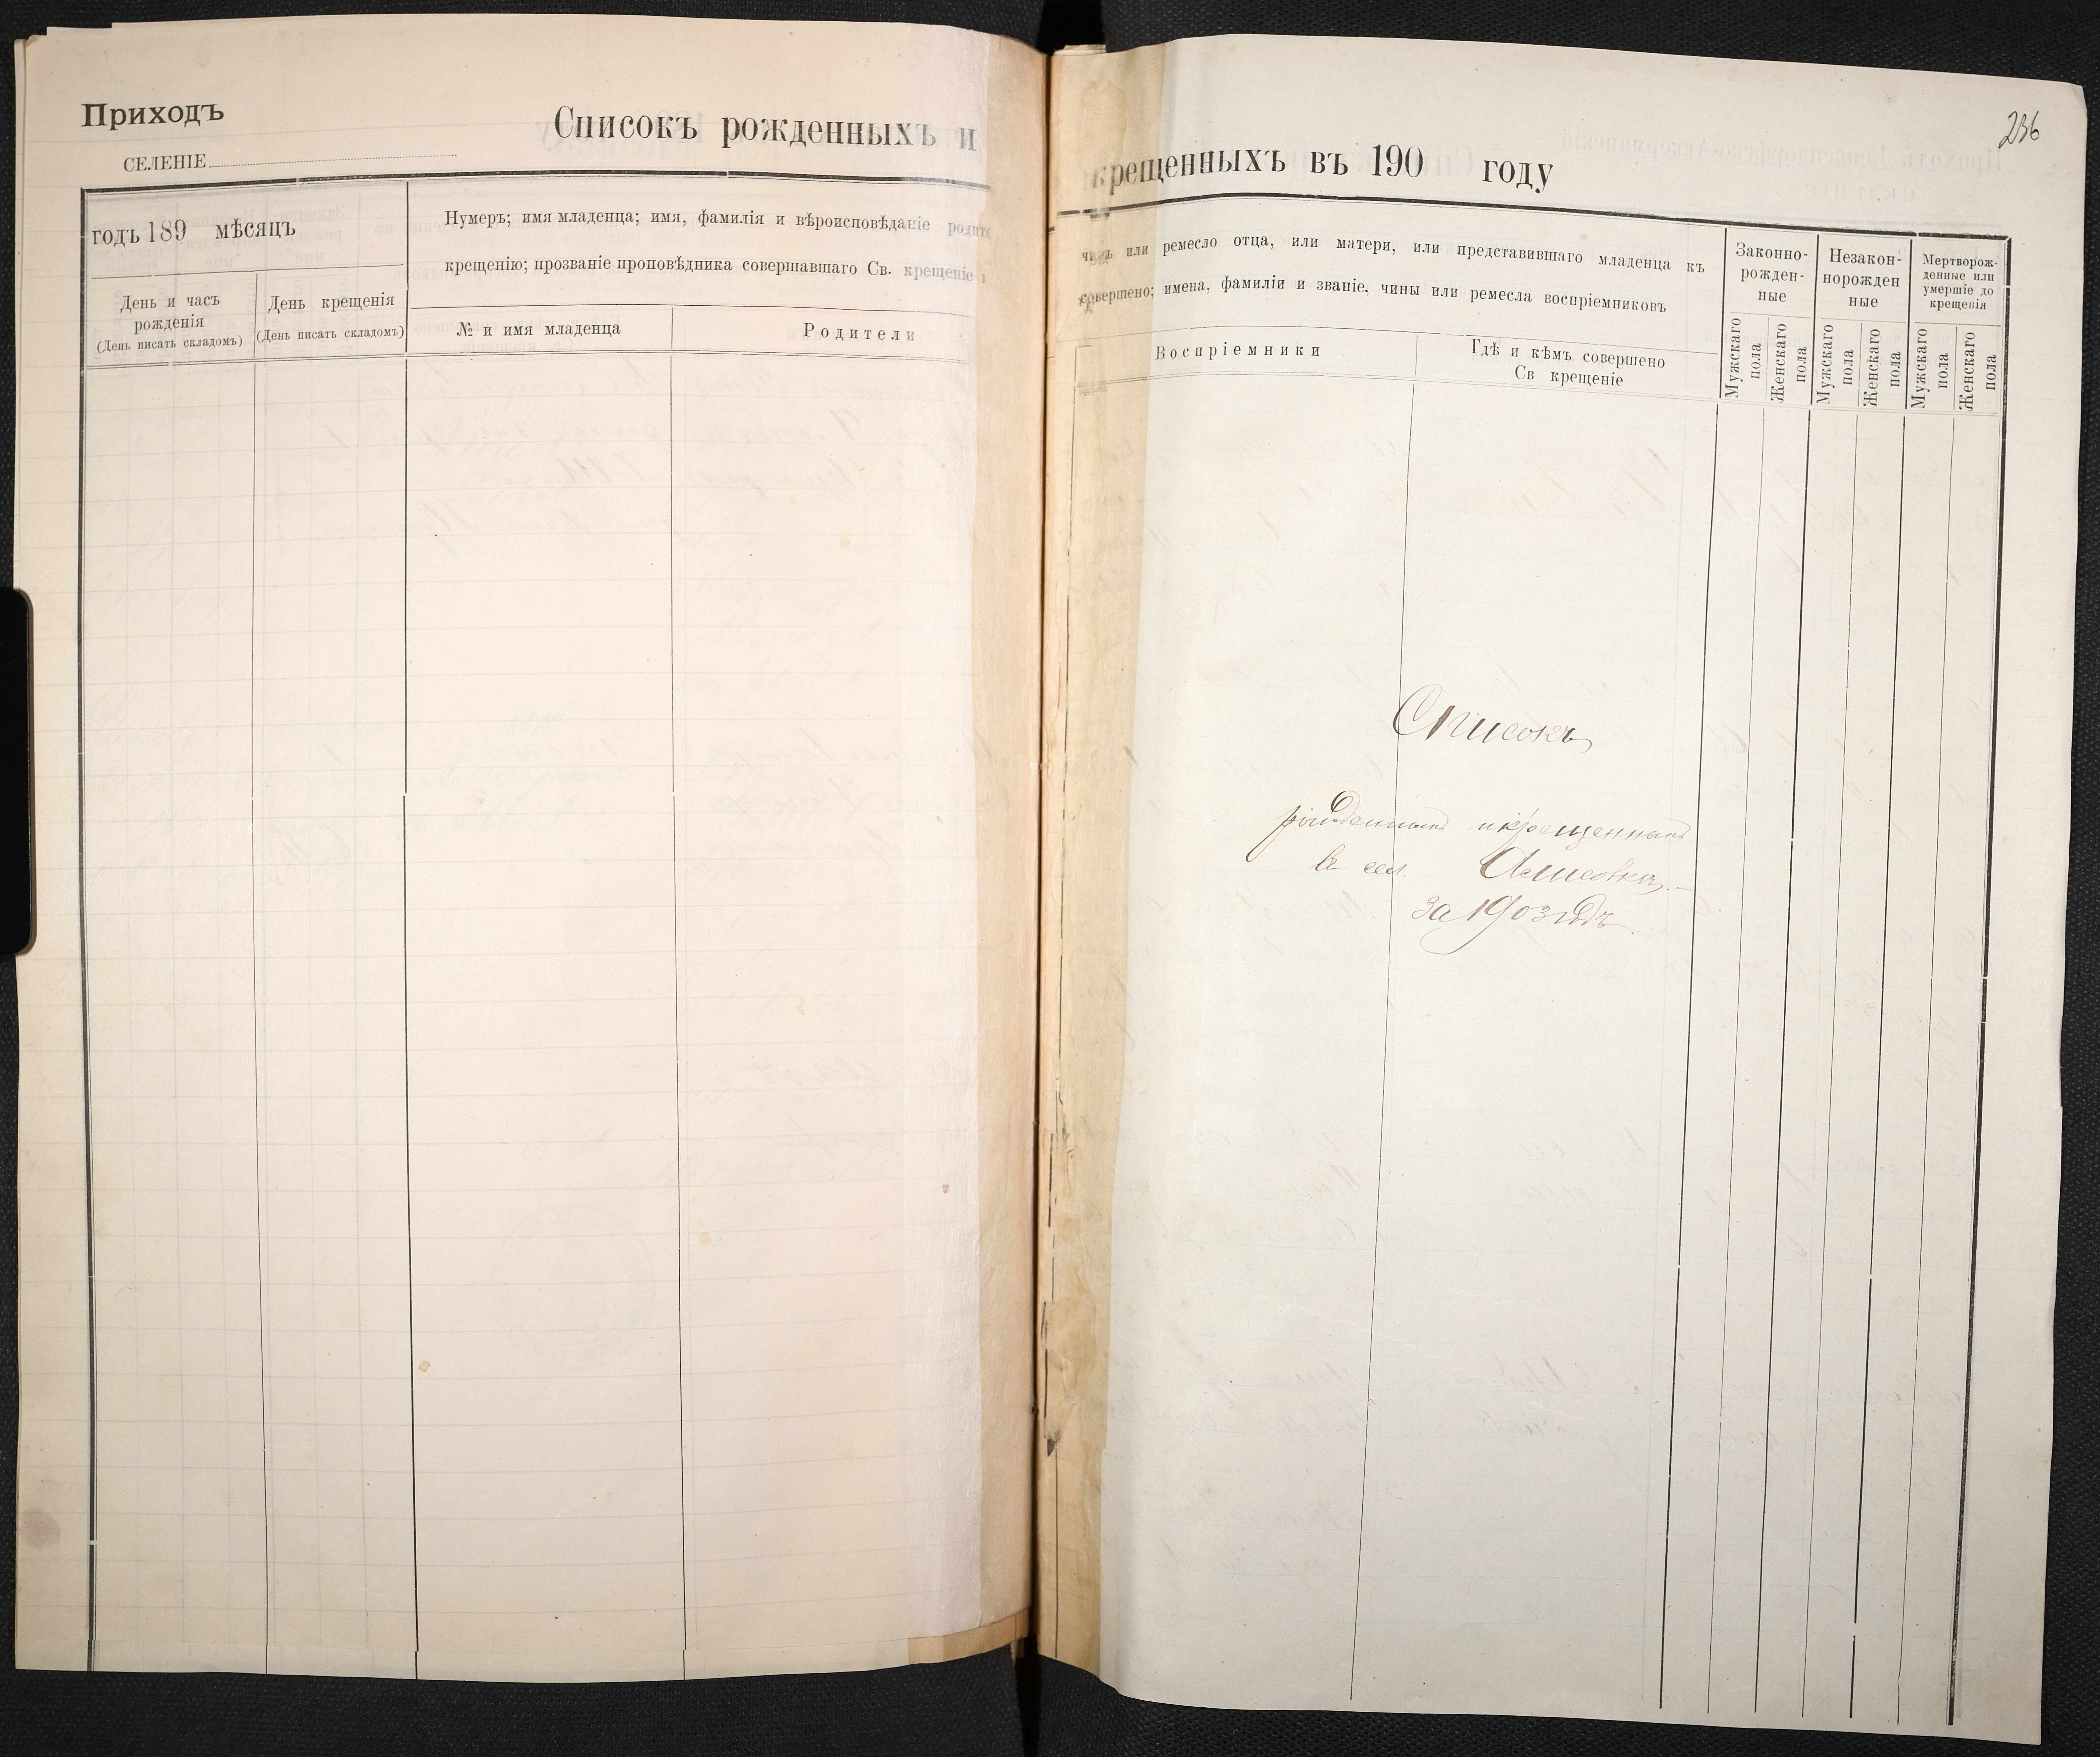 Приходъ
СЕЛЕНІЕ
Списокъ рожденныхъ и
годъ 189 мѣсяцъ
Нумеръ; имя младенца; имя, фамилія и вѣроисповѣданіе родите
крещенію; прозваніе проповѣдника совершавшаго Св. крещеніе и
День и часъ
рожденія
(День писать складомъ)
День крещенія
(День писать складомъ)
№ и имя младенца
Родители
236
крещенныхъ въ 190 году
чинъ или ремесло отца, или матери, или представившаго младенца къ
совершено; имена, фамиліи и званіе, чины или ремесла воспріемниковъ
Воспріемники
Гдѣ и кѣмъ совершено
Св крещеніе
Законно-
рожден-
ные
Незакон-
норожден
ные
Мертворож-
денные или
умершіе до
крещенія
Мужскаго
пола
Женскаго
пола
Мужскаго
пола
Женскаго
пола
Мужскаго
пола
Женскаго
пола
Списокъ
рожденныхъ и крещенныхъ
въ сел.
за 1903 годъ.